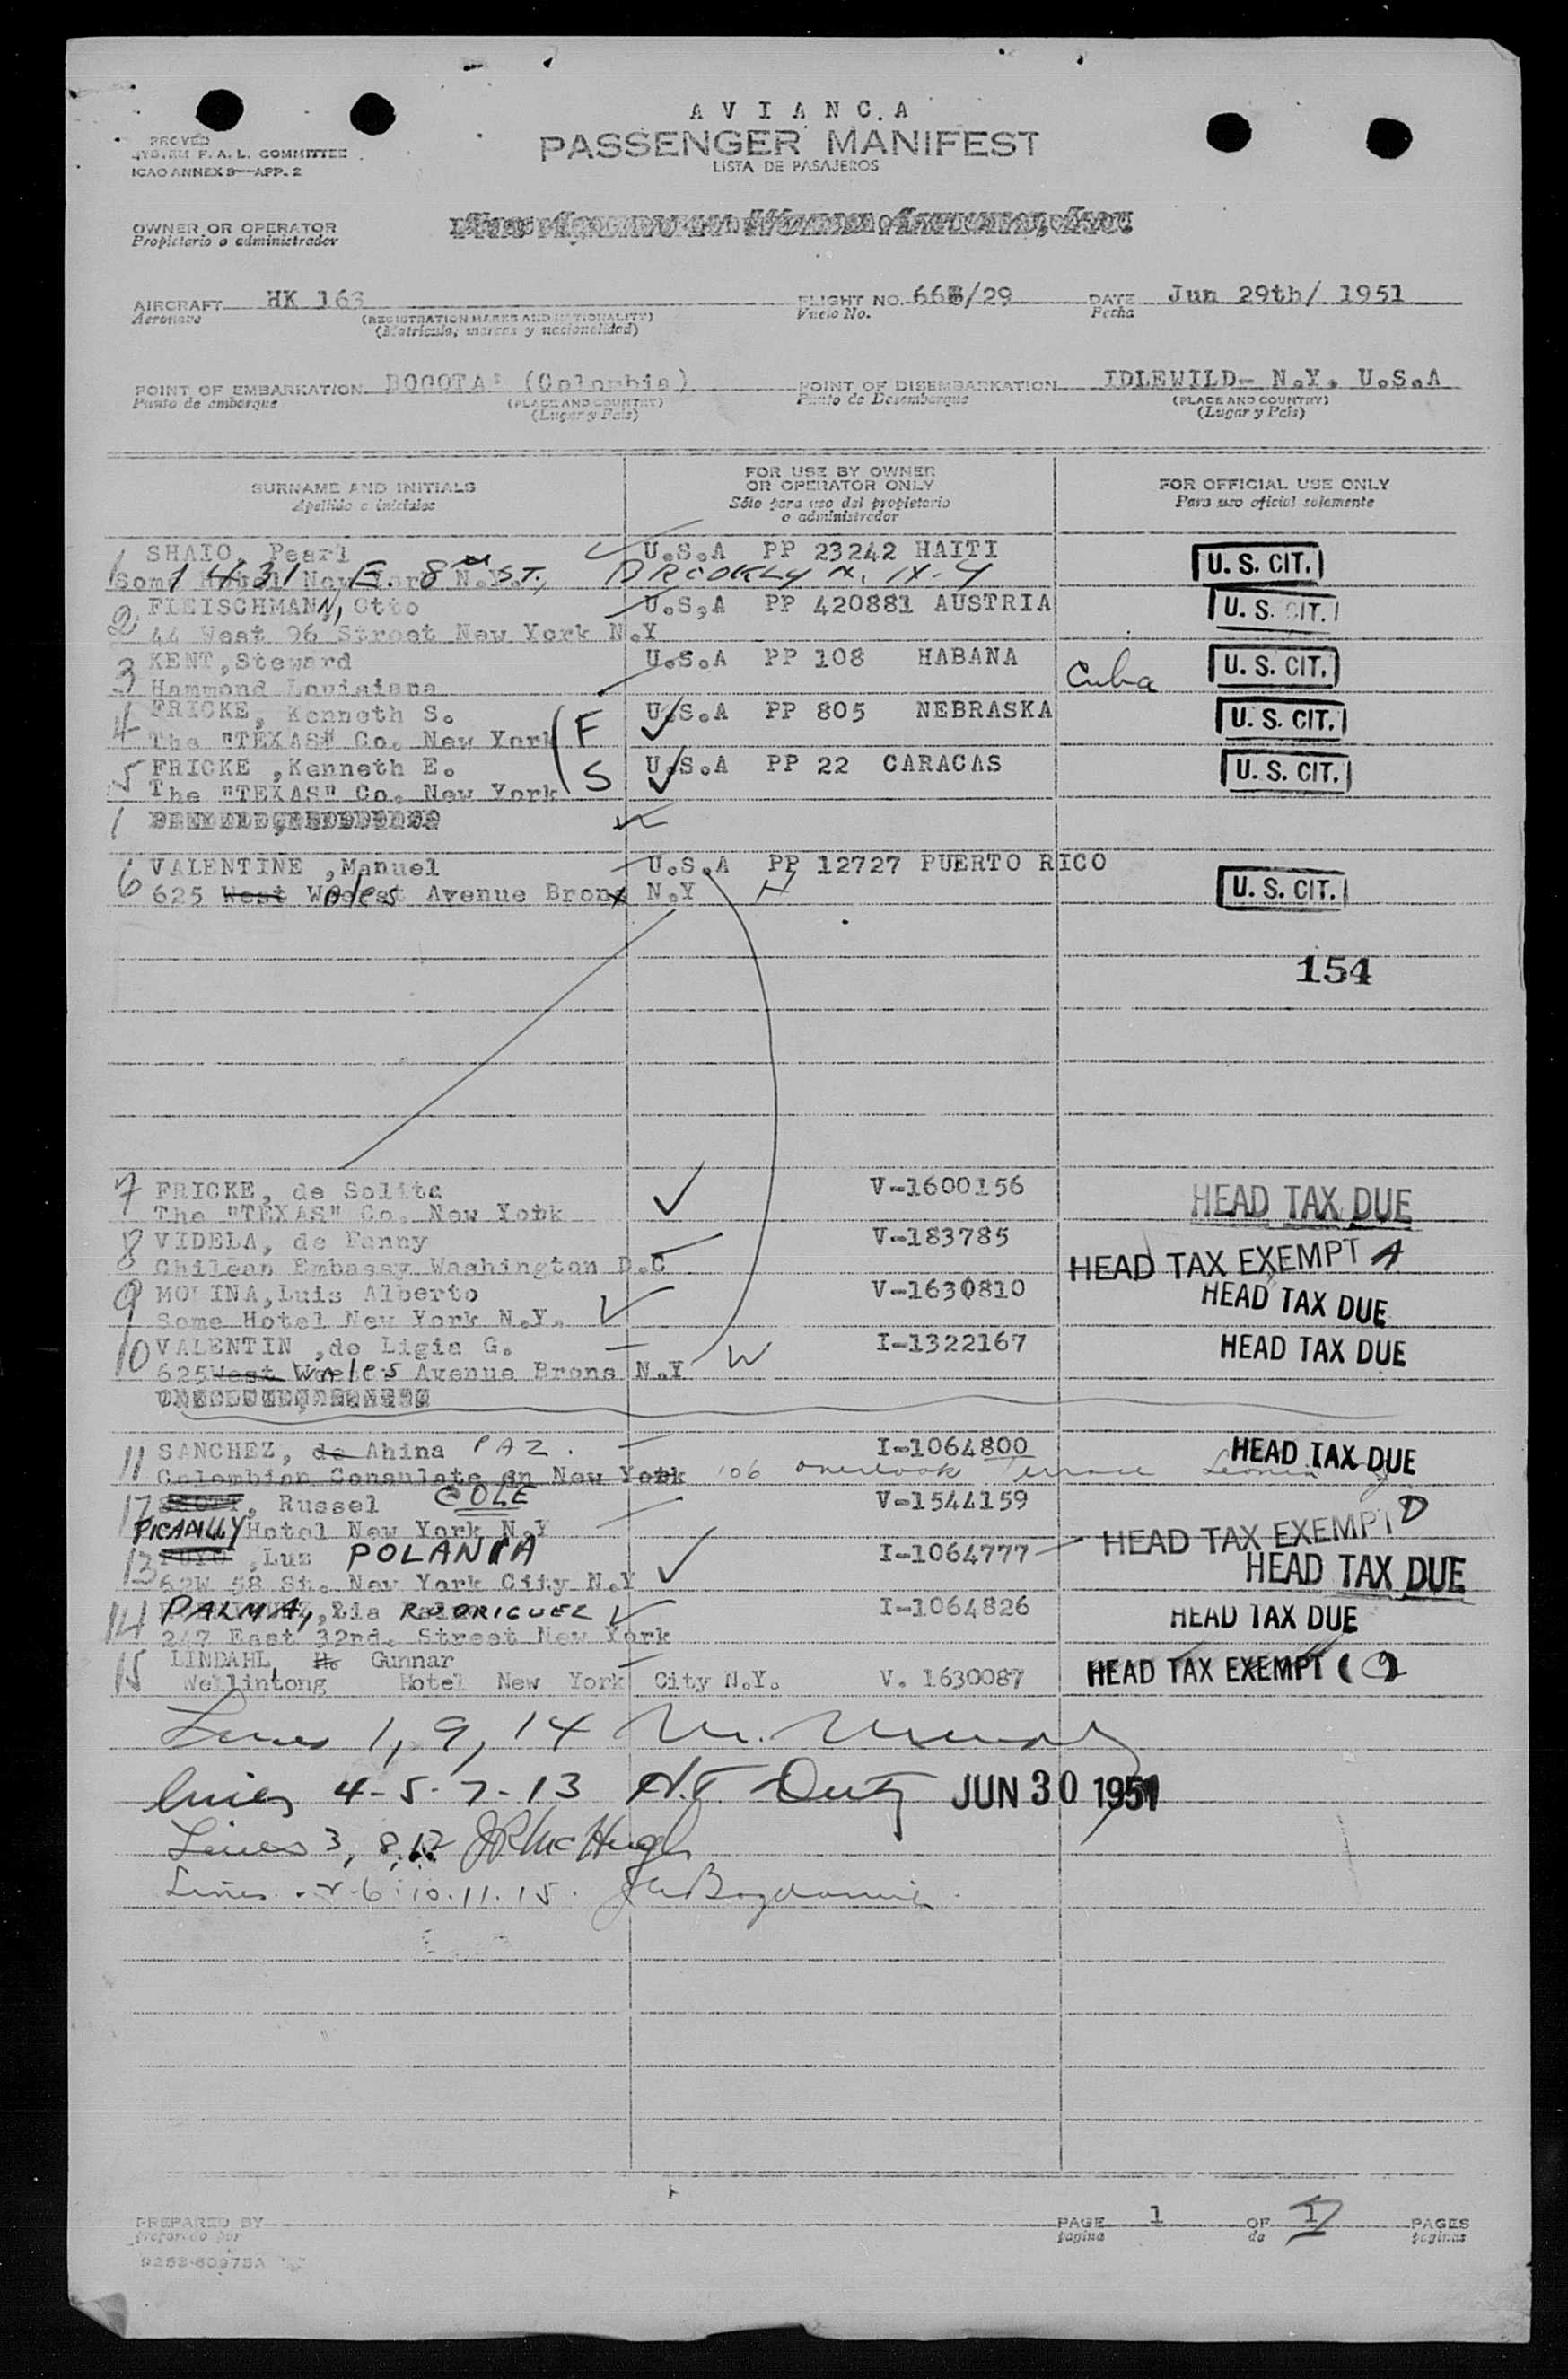 A V I A N C A
PASSENGER MANIFEST
LISTA DE PASAJEROS
PROVED
F. A. L. COMMITTEE
ICAO ANNEX 9—APP. 2
OWNER OR OPERATOR
Propietario o administrador
AIRCRAFT HK 163 FLIGHT NO. 665/29 DATE Jun 29th/ 1951
Aeronave (REGISTRATION MARKS AND NATIONALITY) Vuelo No. Fecha
(Matrícula, marcas y nacionalidad)
POINT OF EMBARKATION BOGOTA (Colombia) POINT OF DISEMBARKATION IDLEWILD- N.Y. U.S.A
Punto de embarque (PLACE AND COUNTRY) Punto de Desembarque (PLACE AND COUNTRY)
(Lugar y País) (Lugar y País)
SURNAME AND INITIALS FOR USE BY OWNER OR OPERATOR ONLY FOR OFFICIAL USE ONLY
Apellido e iniciales Sólo para uso del propietario o administrador Para uso oficial solamente
1 SHAIO, Pearl U.S.A PP 23242 HAITI U. S. CIT.
1431 E. 8th ST., BROOKLYN, N.Y
2 FLEISCHMANN, Otto U.S,A PP 420881 AUSTRIA U. S. CIT.
44 West 96 Street New York N.Y
3 KENT,Steward U.S.A PP 108 HABANA Cuba U. S. CIT.
Hammond Louisiana
4 FRICKE, Kenneth S. F U.S.A PP 805 NEBRASKA U. S. CIT.
The "TEXAS" Co. New York
5 FRICKE ,Kenneth E. S U.S.A PP 22 CARACAS U. S. CIT.
The "TEXAS" Co. New York
1
6 VALENTINE ,Manuel U.S.A PP 12727 PUERTO RICO
625 West Wales Avenue Bronx N.Y U. S. CIT.
154
7 FRICKE, de Solita V-1600156 HEAD TAX DUE
The "TEXAS" Co. New York
8 VIDELA, de Fanny V-183785 HEAD TAX EXEMPT A
Chilean Embassy Washington D.C
9 MOLINA,Luis Alberto V-1630810 HEAD TAX DUE
Some Hotel New York N.Y.
10 VALENTIN ,de Ligia G. I-1322167 HEAD TAX DUE
625 West Wales Avenue Brons N.Y W
11 SANCHEZ, de Ahina PAZ. I-1064800 HEAD TAX DUE
Colombian Consulate in New York 106 Overlook Terrace Leonia
12 Russel COLE V-1544159 HEAD TAX EXEMPT D
PICADILLY Hotel New York N.Y
13 ,Luz POLANIA I-1064777 HEAD TAX DUE
62W 58 St. New York City N.Y
14 PALMA, Lia RODRIGUEZ I-1064826 HEAD TAX DUE
247 East 32nd. Street New York
15 LINDAHL, H. Gunnar
Wellintong Hotel New York City N.Y. V. 1630087 HEAD TAX EXEMPT (9)
Lines 1, 9, 14
Lines 4-5-7-13 JUN 30 1951
Lines 3, 8, 12 JR McHugh
Lines 2-6-10.11.15.
PREPARED BY PAGE 1 OF 1 PAGES
preparado por página de páginas